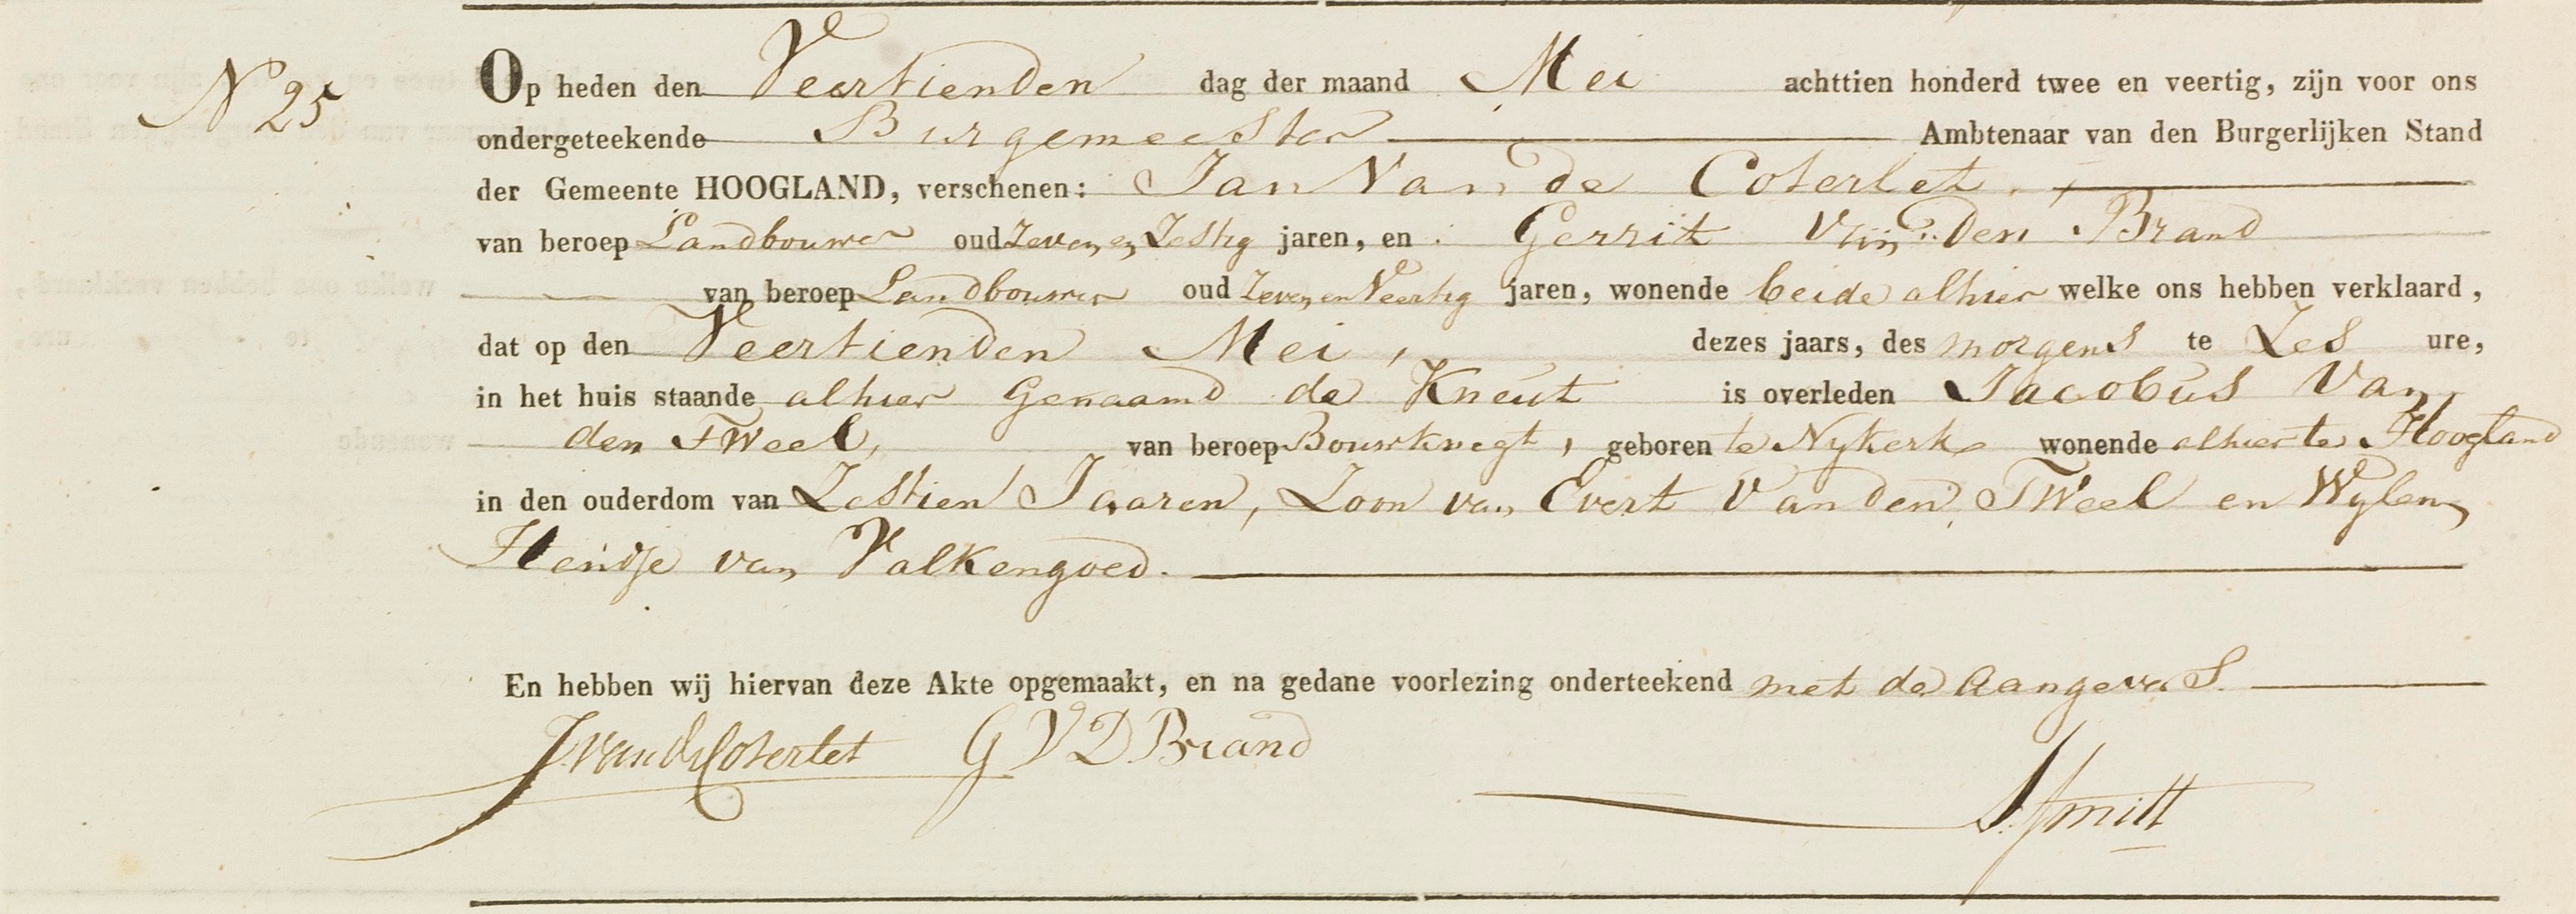 N 25
Op heden den Veertienden dag der maand Mei achttien honderd twee en veertig, zijn voor ons
ondergeteekende Burgemeester Ambtenaar van den Burgerlijken Stand
der Gemeente HOOGLAND, verschenen: Jan Van de Coterlet.
van beroep Landbouwer oud Zeven en Zestig jaren, en Gerrit Van den Brand
van beroep Landbouwer oud Zeven en Veertig jaren, wonende beide alhier welke ons hebben verklaard,
dat op den Veertienden Mei, dezes jaars, des morgens te Zes ure,
in het huis staande alhier Genaamd de Kneut is overleden Jacobus Van
den Tweel, van beroep Bouwknegt, geboren te Nykerk wonende alhier te Hoogland
in den ouderdom van Zestien Jaaren, Zoon van Evert Van den Tweel en Wylen
Heintje van Valkengoed.
En hebben wij hiervan deze Akte opgemaakt, en na gedane voorlezing onderteekend met de Aangevers.
J van de Coterlet G V D Brand
S. Smitt